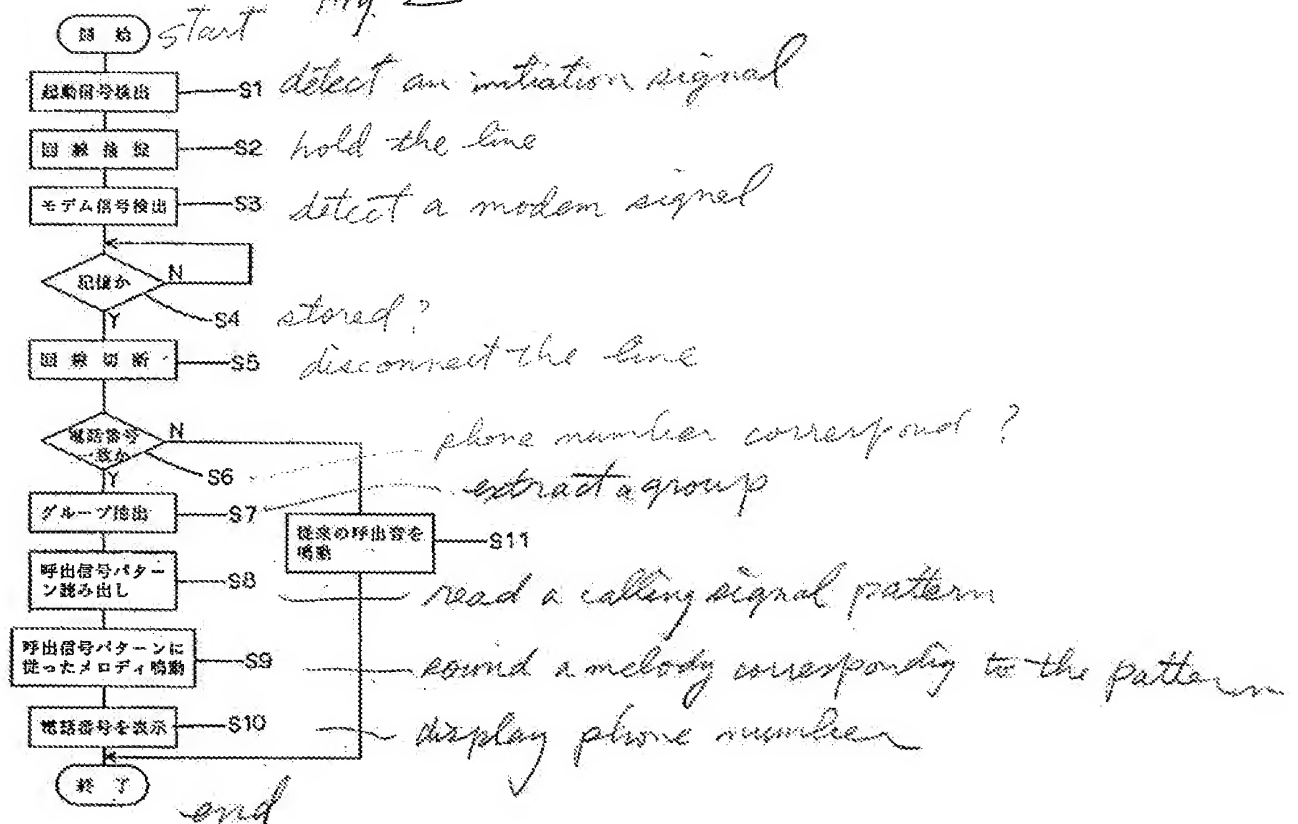 Fig. 2
開始 start
起動信号検出 S1 detect an initiation signal
回線捕捉 S2 hold the line
モデム信号検出 S3 detect a modem signal
記憶か N
Y S4 stored?
回線切断 S5 disconnect the line
電話番号 N phone number correspond?
一致か
Y S6
グループ抽出 S7 extract a group
従来の呼出音を S11
鳴動
呼出信号パター S8 read a calling signal pattern
ン読み出し
呼出信号パターンに S9 sound a melody correspondig to the pattern
従ったメロディ鳴動
電話番号を表示 S10 display phone number
終了
end